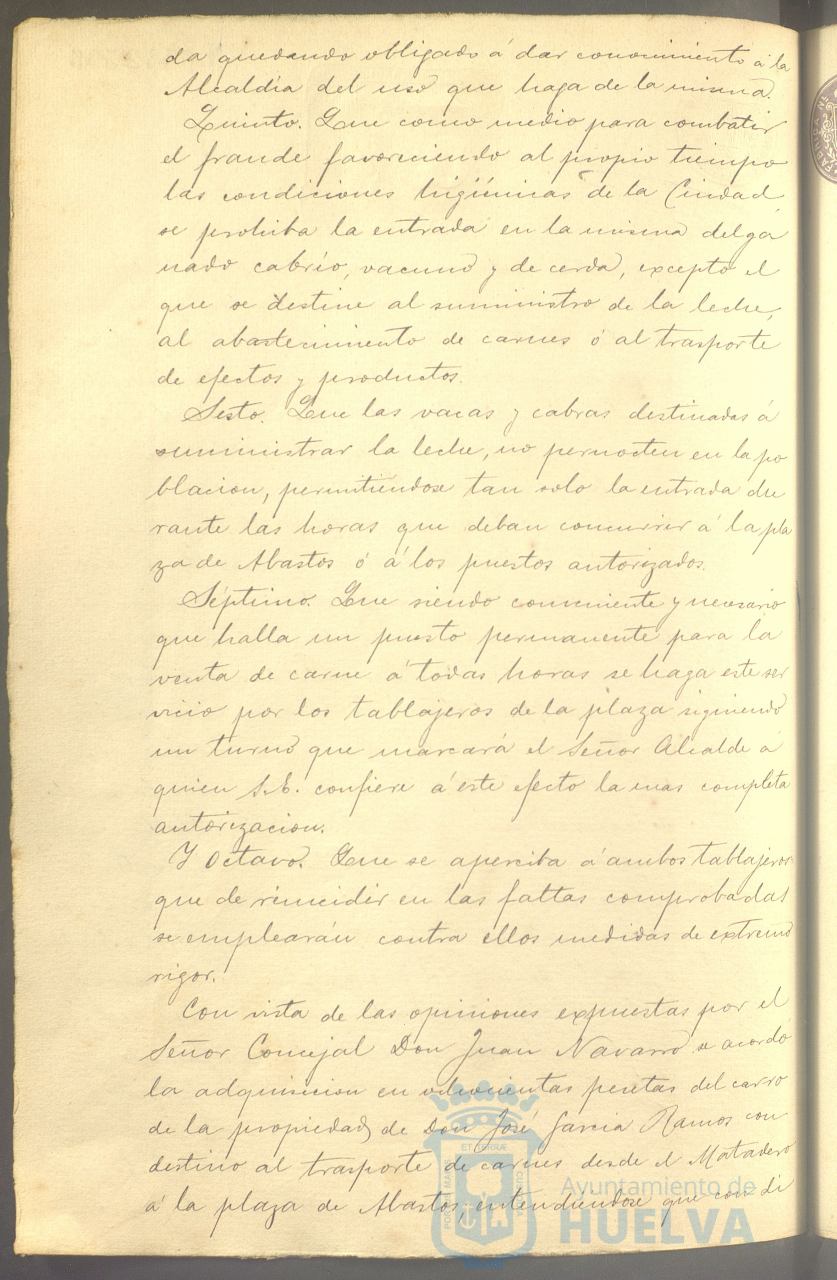 da quedando obligado á dar conocimiento á la
Alcaldía del uso que haga de la misma.
Quinto. Que como medio para combatir
el fraude favoreciendo al propio tiempo
las condiciones higiénicas de la Ciudad
se prohiba la entrada en la misma del ga
nado cabrío, vacuno y de cerda, excepto el
que se destine al suministro de la leche,
al abastecimiento de carnes ó al trasporte
de efectos y productos.
Sesto. Que las vacas y cabras destinadas á
suministrar la leche, no pernocten en la po
blacion, permitiendose tan solo la entrada du
rante las horas que deban concurrir á la pla
za de Abastos ó á los puestos autorizados.
Séptimo. Que siendo conveniente y necesario
que halla un puesto permanente para la
venta de carne á todas horas se haga este ser
vicio por los tablajeros de la plaza siguiendo
un turno que marcará el Señor Alcalde á
quien S.E. confiere á este efecto la mas completa
autorizacion.
Y Octavo. Que se aperciba á ambos tablajeros
que de reincidir en las faltas comprobadas
se emplearán contra ellos medidas de extremo
rigor.
Con vista de las opiniones expuestas por el
Señor Concejal Don Juan Navarro se acordó
la adquisicion en pesetas del carro
de la propiedad de Don José Garcia Ramos con
destino al trasporte de carnes desde el Matadero
á la plaza de Abastos, entendiendose que con di
Ayuntamiento de
HUELVA